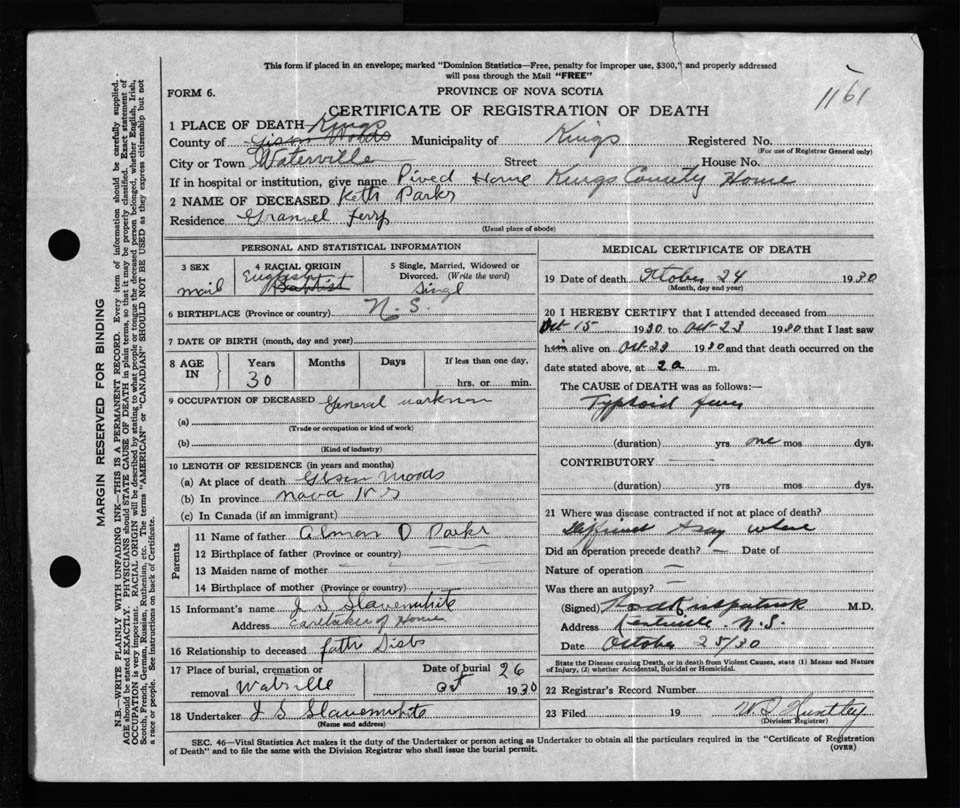 This form if placed in an envelope, marked "Dominion Statistics—Free, penalty for improper use, $300," and properly addressed
will pass through the Mail "FREE"
FORM 6.
PROVINCE OF NOVA SCOTIA
1161
CERTIFICATE OF REGISTRATION OF DEATH
1 PLACE OF DEATH Kings
County of Municipality of Kings Registered No.
(For use of Registrar General only)
City or Town Waterville Street House No.
If in hospital or institution, give name Home Kings County Home
2 NAME OF DECEASED Keth Parks
Residence Granvel Ferry
(Usual place of abode)
PERSONAL AND STATISTICAL INFORMATION
3 SEX mail
4 RACIAL ORIGIN English Baptist
5 Single, Married, Widowed or Divorced. (Write the word) Singl
6 BIRTHPLACE (Province or country) N. S.
7 DATE OF BIRTH (month, day and year)
8 AGE IN Years 30 Months Days If less than one day, hrs. or min.
9 OCCUPATION OF DECEASED General
(a)
(Trade or occupation or kind of work)
(b)
(Kind of industry)
10 LENGTH OF RESIDENCE (in years and months)
(a) At place of death Woods
(b) In province nova
(c) In Canada (if an immigrant)
Parents
11 Name of father Alman D Parks
12 Birthplace of father (Province or country)
13 Maiden name of mother
14 Birthplace of mother (Province or country)
15 Informant's name J S Slavenwhite
Address Caretaker of Home
16 Relationship to deceased
17 Place of burial, cremation or removal Watville
Date of burial Oct 26 1930
18 Undertaker J S Slavenwhite
(Name and address)
MEDICAL CERTIFICATE OF DEATH
19 Date of death October 24 1930
(Month, day and year)
20 I HEREBY CERTIFY that I attended deceased from
Oct 15 1930 to Oct-23 1930 that I last saw
him alive on Oct-23 1930 and that death occurred on the
date stated above, at 2 a m.
The CAUSE of DEATH was as follows:—
Typhoid fever
(duration) yrs one mos dys.
CONTRIBUTORY
(duration) yrs mos dys.
21 Where was disease contracted if not at place of death?
where
Did an operation precede death? — Date of
Nature of operation —
Was there an autopsy? —
(Signed) Kirkpatrick M.D.
Address Kentville N.S.
Date October 25/30
State the Disease causing Death, or in death from Violent Causes, state (1) Means and Nature of Injury, (2) whether Accidental, Suicidal or Homicidal.
22 Registrar's Record Number
23 Filed 19 Huntley
(Division Registrar)
SEC. 46—Vital Statistics Act makes it the duty of the Undertaker or person acting as Undertaker to obtain all the particulars required in the "Certificate of Registration
of Death" and to file the same with the Division Registrar who shall issue the burial permit.
(OVER)
MARGIN RESERVED FOR BINDING
N.B.—WRITE PLAINLY WITH UNFADING INK—THIS IS A PERMANENT RECORD. Every item of information should be carefully supplied.
AGE should be stated EXACTLY. PHYSICIANS should STATE CAUSE OF DEATH in plain terms, so that it may be properly classified. Exact statement of
OCCUPATION is very important. RACIAL ORIGIN will be described by stating to what people or tongue the deceased person belonged, whether English, Irish,
Scotch, French, German, Russian, Ruthenian, etc. The terms "AMERICAN" or "CANADIAN" SHOULD NOT BE USED as they express citizenship but not
a race or people. See instructions on back of Certificate.